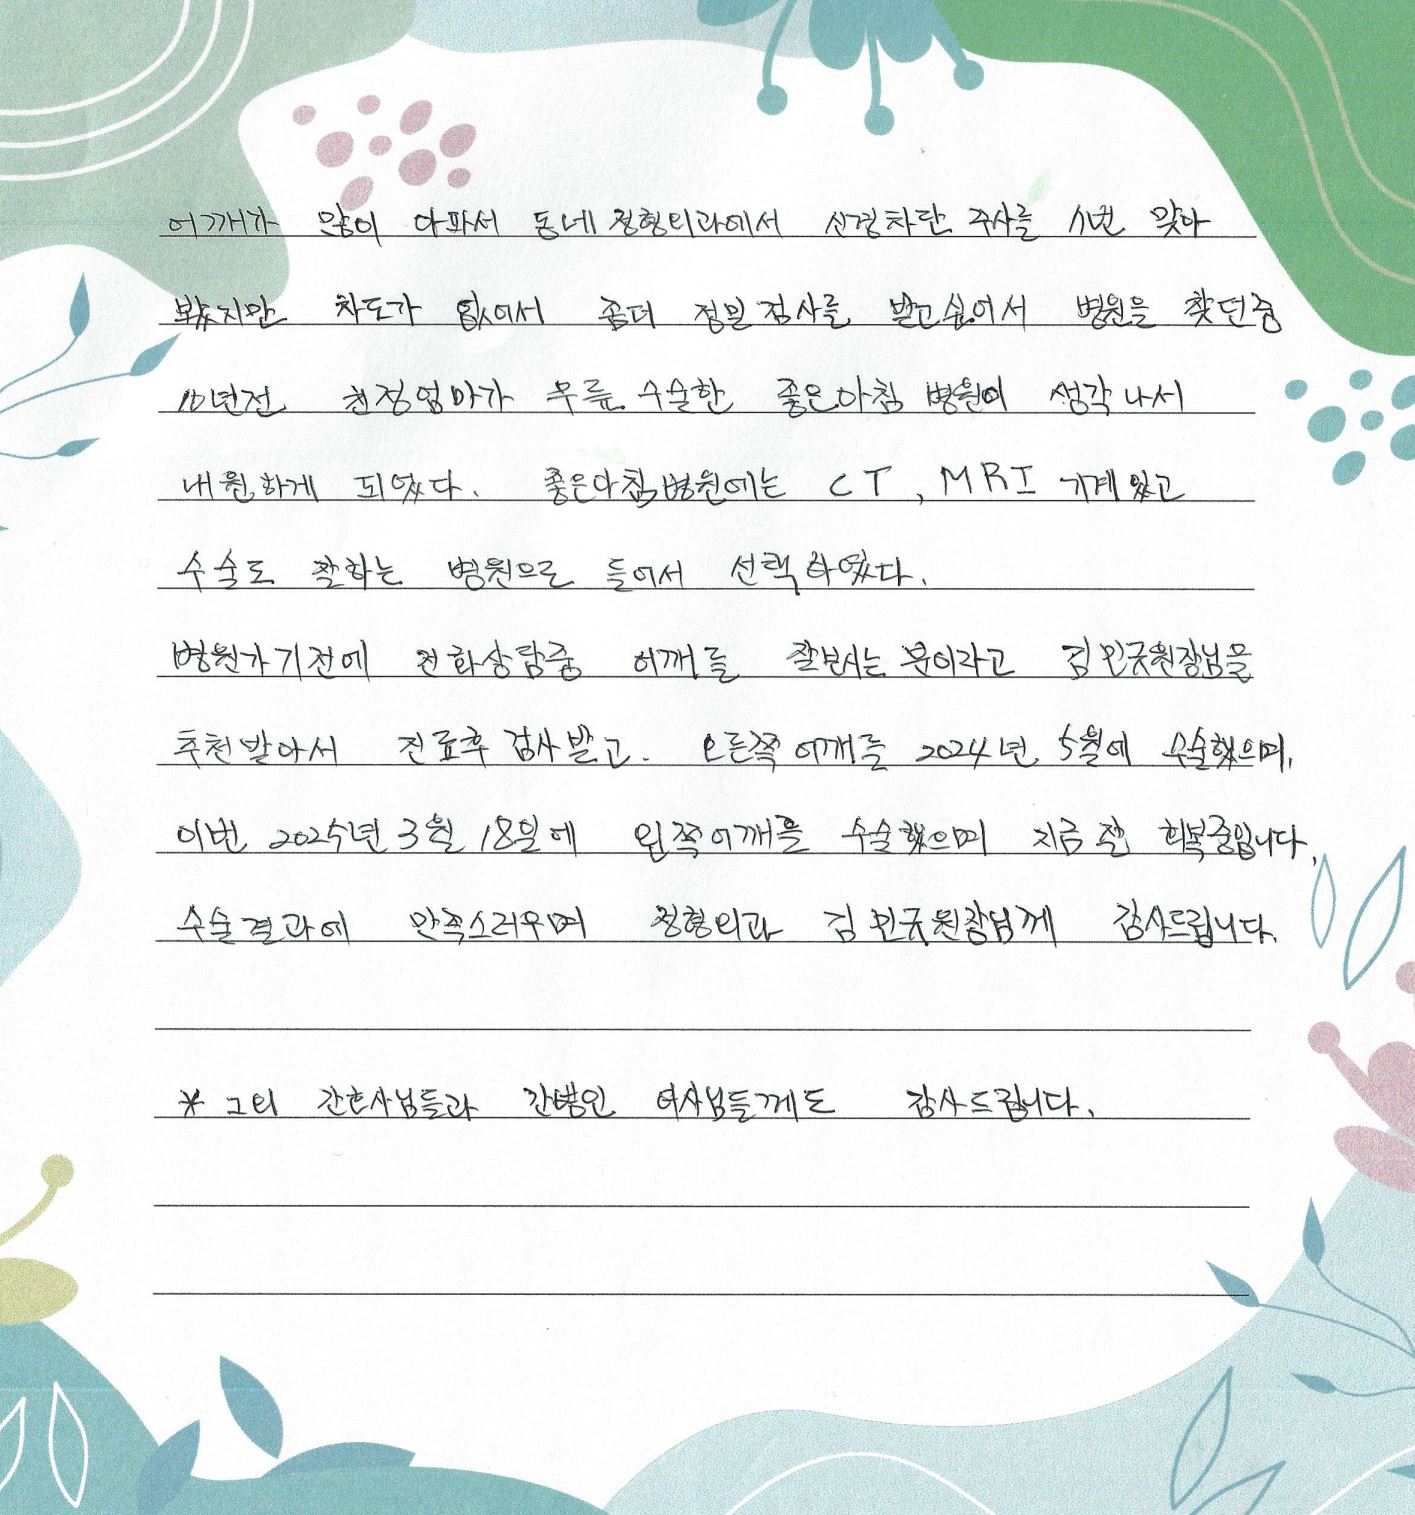 어깨가 많이 아파서 동네 정형외과에서 신경차단 주사를 11번 맞아
봤지만 차도가 없어서 좀더 정밀 검사를 받고싶어서 병원을 찾던중
10년전 친정엄마가 무릎 수술한 좋은아침 병원이 생각나서
내원하게 되었다. 좋은아침병원에는 CT, MRI 기계있고
수술도 잘하는 병원으로 들어서 선택하였다.
병원가기전에 전화상담중 어깨를 잘보시는 분이라고 김민국원장님을
추천받아서 진료후 검사받고. 오른쪽 어깨를 2024년 5월에 수술했으며,
이번 2025년 3월 18일에 왼쪽어깨를 수술했으며 지금 잘 회복중입니다.
수술결과에 만족스러우며 정형외과 김민국원장님께 감사드립니다.
* 그외 간호사님들과 간병인 여사님들께도 감사드립니다.